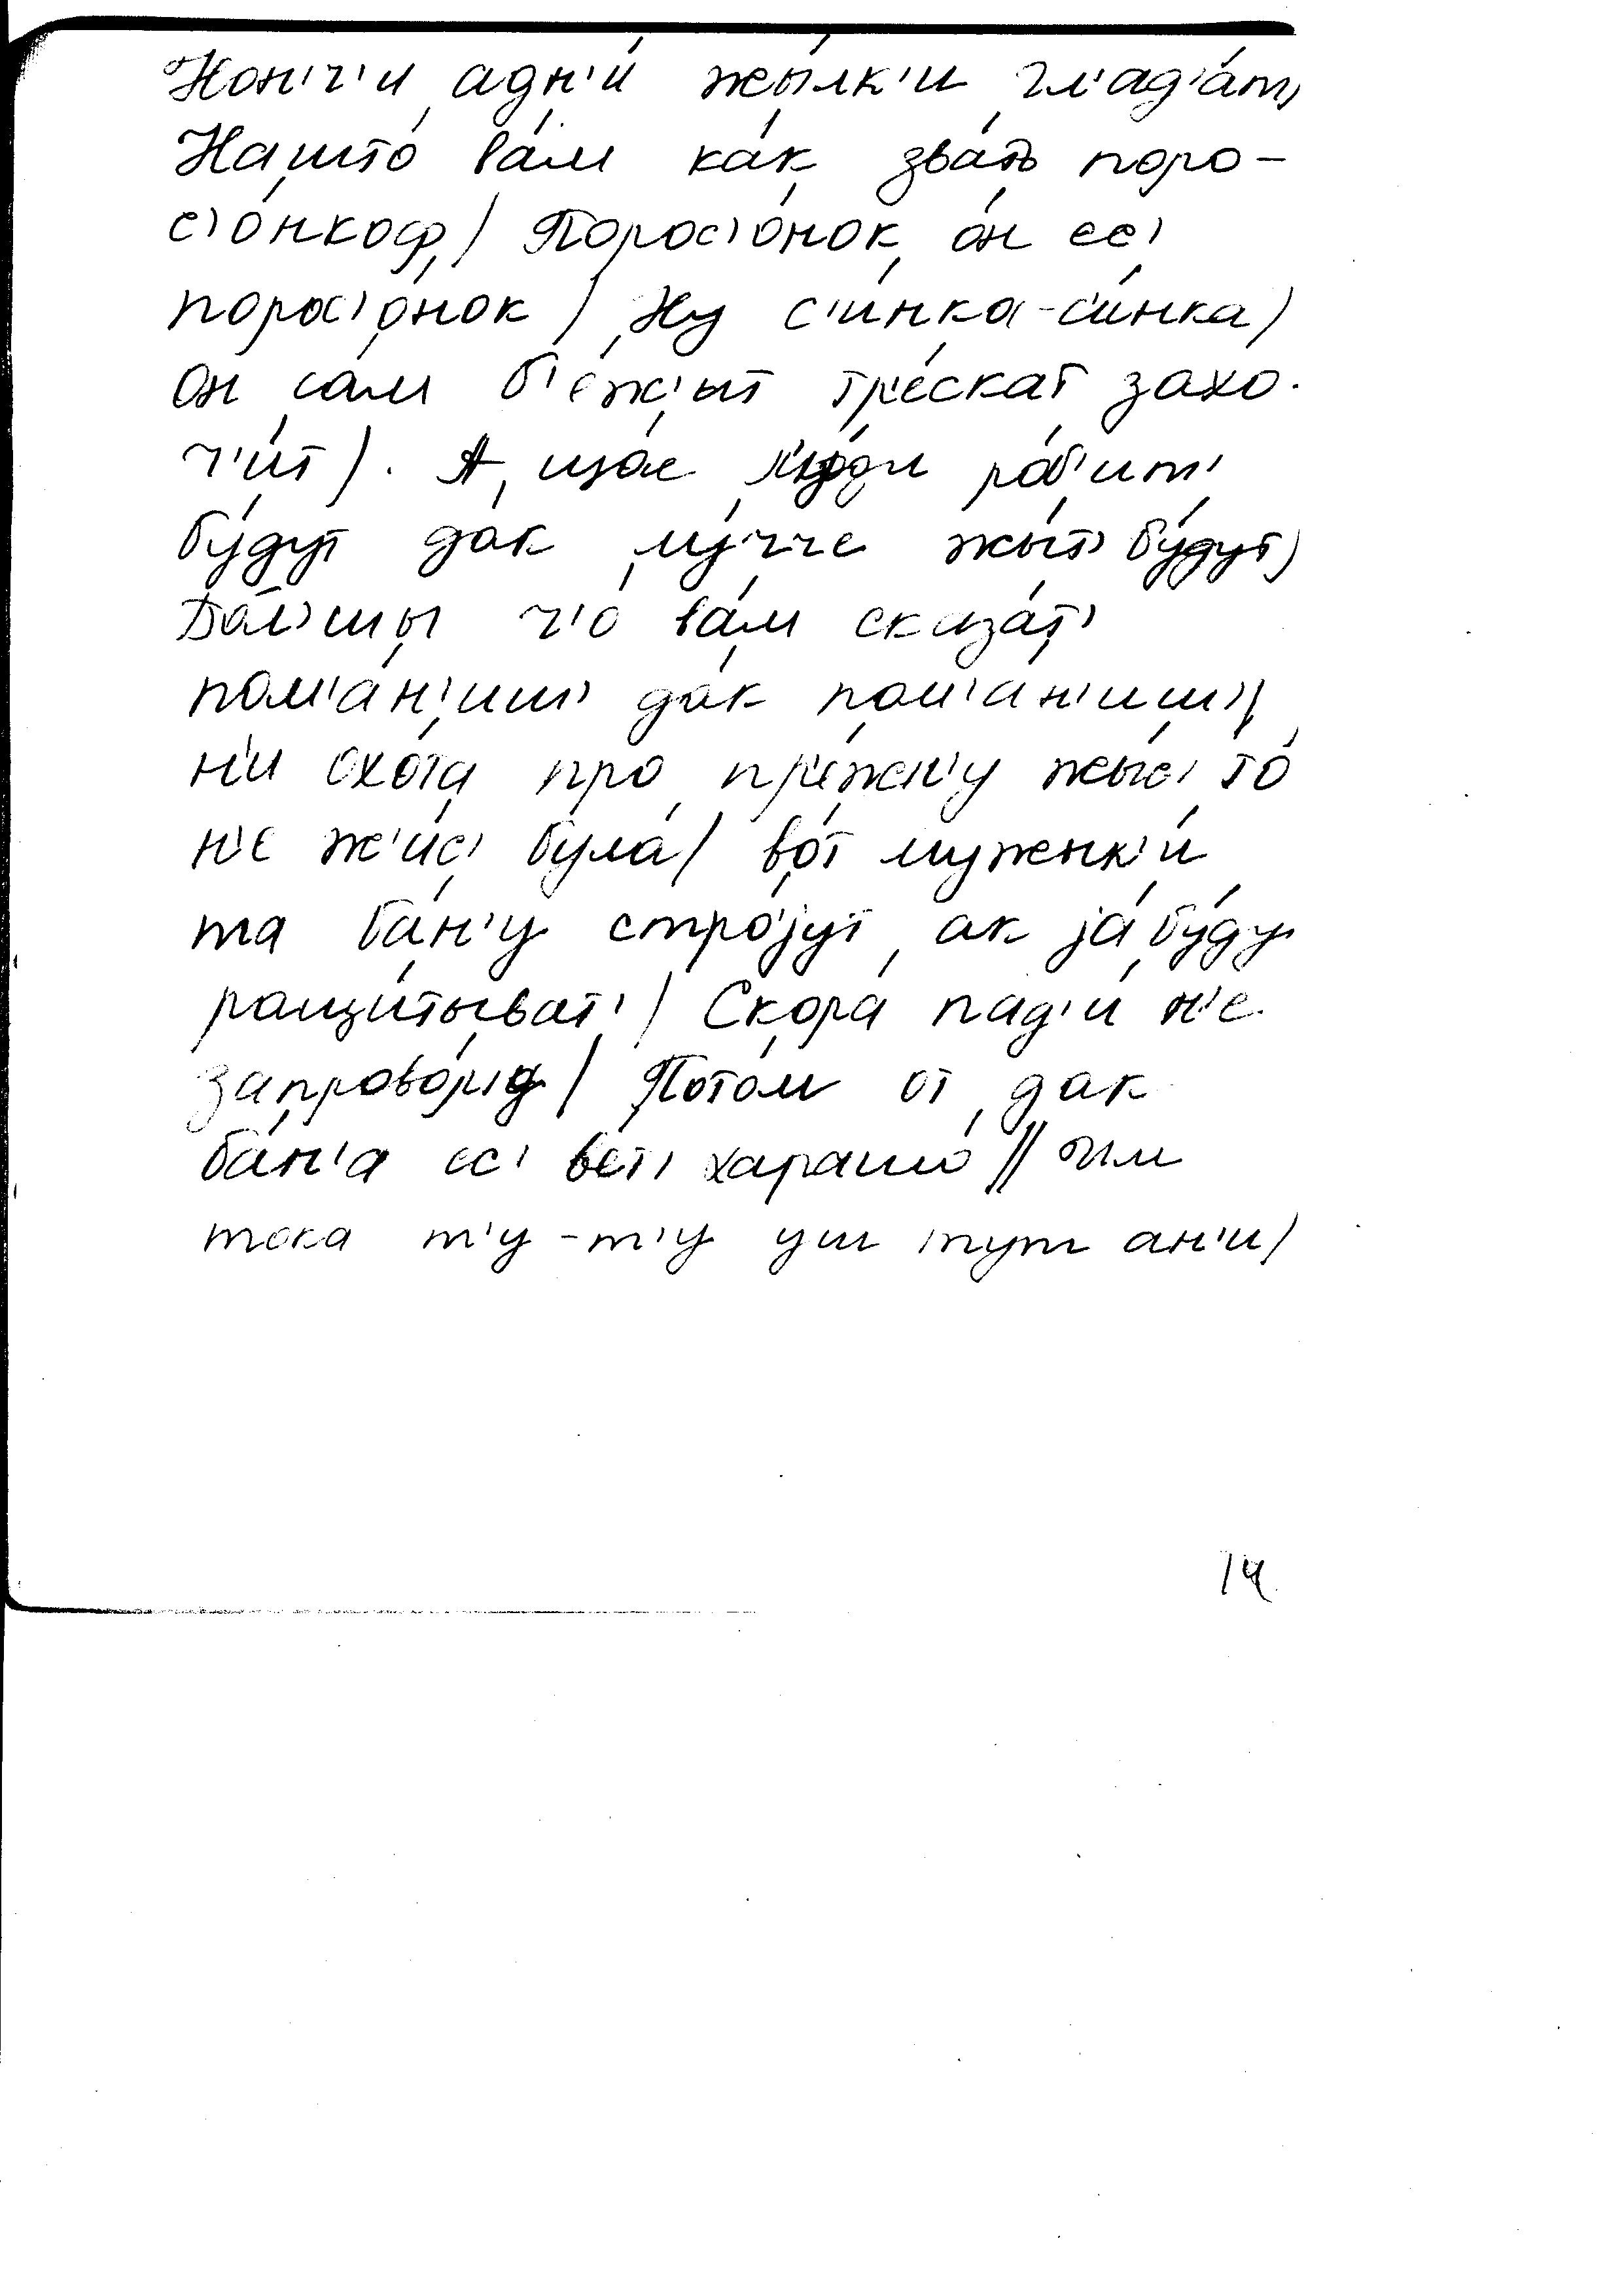 Нон'ч'и адн'и́ жы́лк'и гл'ад'а́т/
Нашто́ ва́м ка́к зва́т' поро-
с'о́нкоф/ Порос'о́нок о́н ес'
порос'о́нок / Ну с'и́нка-с'и́нка/
Он са́м б'еж'ыт тр'е́скат захо-
ч'и́т/. А щас л'у́ди ро́б'ит'
бу́дут да́к лу́чче жы́т' бу́дут/
Бо́л'шы ч'о ва́м сказа́т'
пом'а́н'иш' да́к пом'а́н'иш'/
н'и охо́та про пр'е́жн'у жы́с' то́
н'е ж'ис' була́/ во́т мужык'и́
та ба́н'у стро́јут ак ја́ бу́ду
ращи́тыват'/ Скора́ пад'и́ н'е
запрово́р'а/ Пото́м от да́к
ба́н'а ес' ве́т' харашо́ // Им
тока т'у-т'у уш тут ан'и/
14